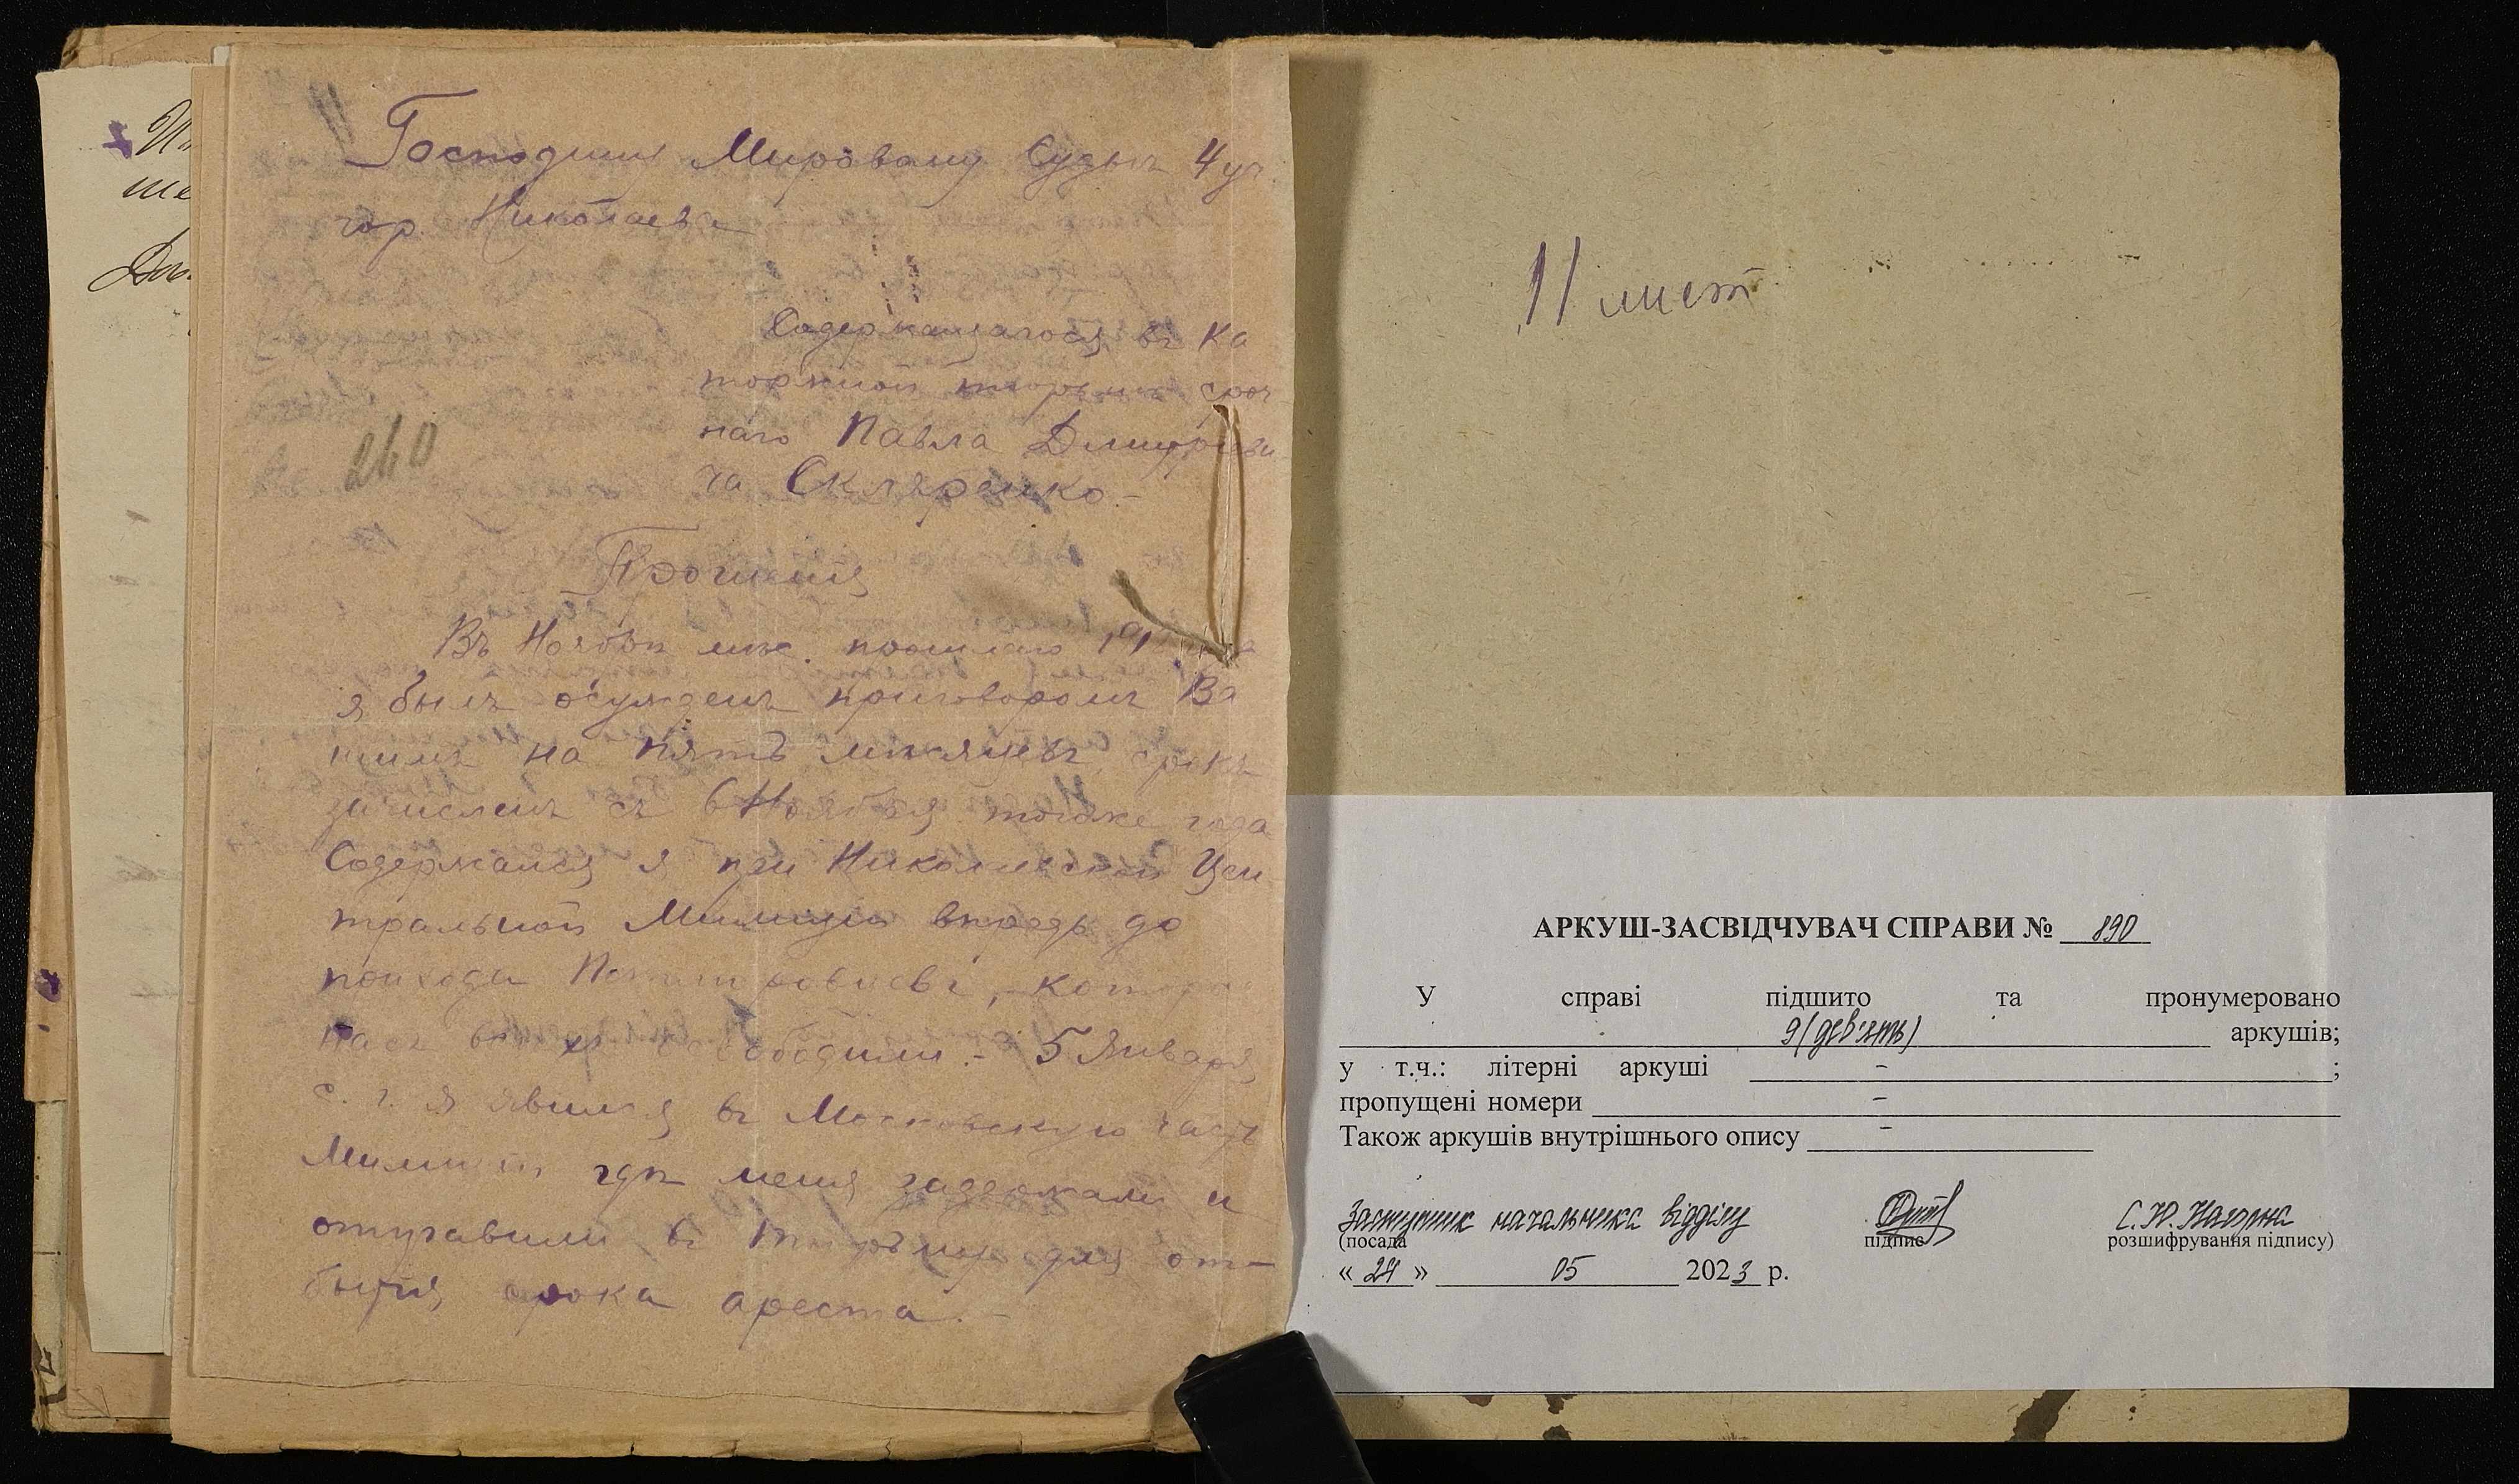 Ип
ше
Господину Мировому Судьѣ 4 уч.
гор. Николаева
Содержащагося въ Ка
торжной тюрьмѣ сроч
наго Павла Дмитріеви
ча Скляренко.-
240
Прошенія
Въ Ноябрѣ мѣс. прошлаго
я былъ осужденъ приговоромъ Ва
шимъ на пять мѣсяцевъ, срокъ
зачисленъ съ 6 Ноября того же года
Содержался я при Николаевской Цен
тральной Милиціи впредь до
прихода
насъ освободили.- 5 Января
с. г. я явился въ Московскую часть
Милиціи гдѣ меня задержали и
отправили въ тюрьму для от-
бытія срока ареста.-
11 лист
АРКУШ-ЗАСВІДЧУВАЧ СПРАВИ № 890
У справі підшито та пронумеровано
9 (дев'ять) аркушів;
у т.ч.: літерні аркуші - ;
пропущені номери -
Також аркушів внутрішнього опису -
Заступник начальника відділу С.Ю.
(посада підпис розшифрування підпису)
« 24 » 05 2023 р.